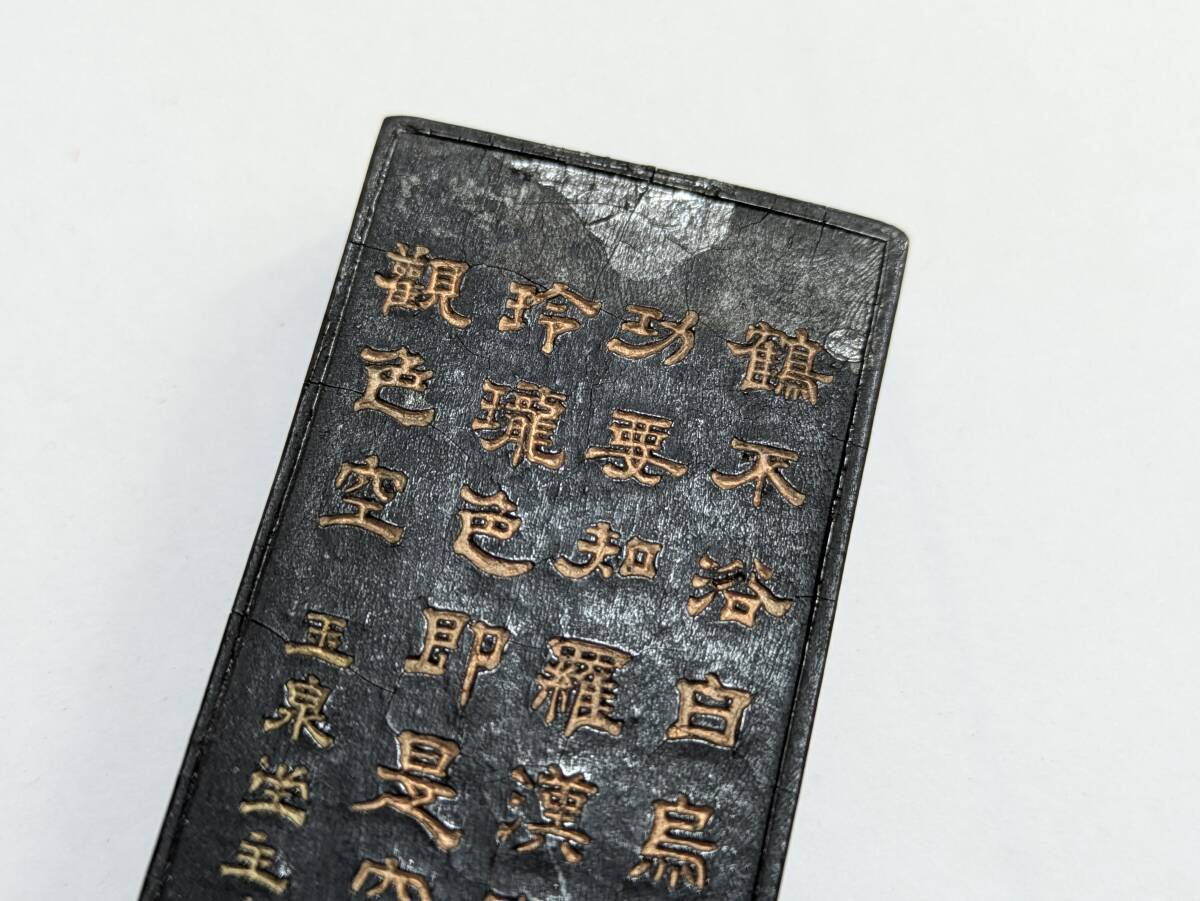 鶴不浴白烏
功要知羅漢
玲瓏色即是空
觀色空
玉泉坐主